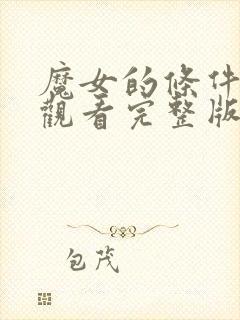 魔女的條件
觀看完整版
包茂